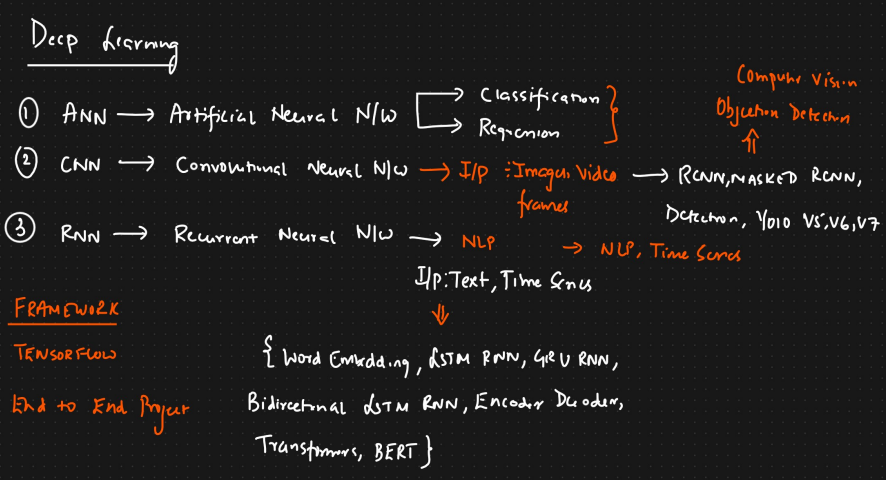 Deep Learning
① ANN → Artificial Neural N/W → Classification
→ Regression
Computer Vision
Objection Detection
② CNN → Convolutional Neural N/W → I/p : Images, Video frames → RCNN, MASKED RCNN,
Detection, Yolo V5, V6, V7
③ RNN → Recurrent Neural N/W → NLP → NLP, Time Series
I/p: Text, Time Series
{ Word Embedding, LSTM RNN, GRU RNN,
Bidirectional LSTM RNN, Encoder Decoder,
Transformers, BERT }
FRAMEWORK
TENSORFLOW
End to End Project